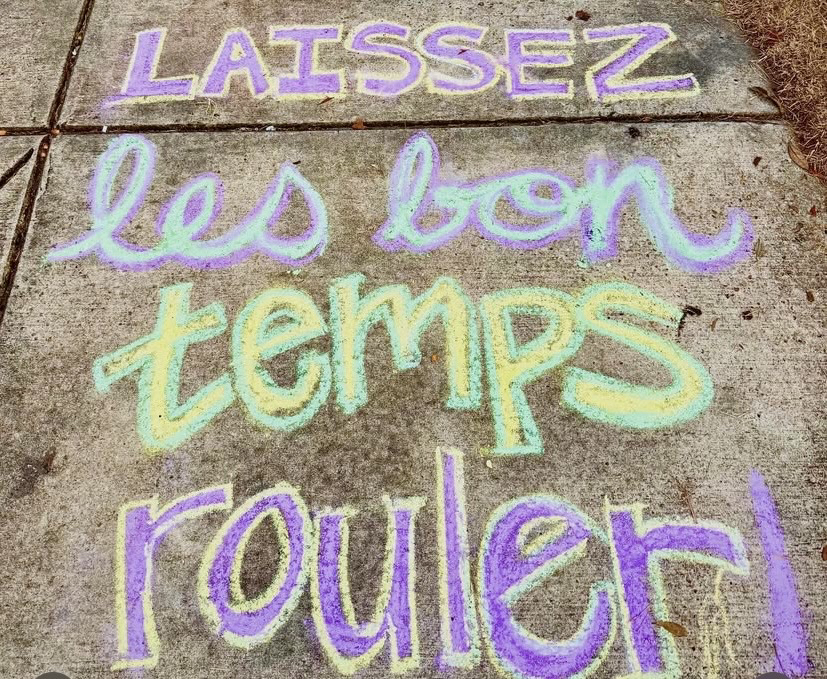 LAISSEZ
les bon
temps
rouler!